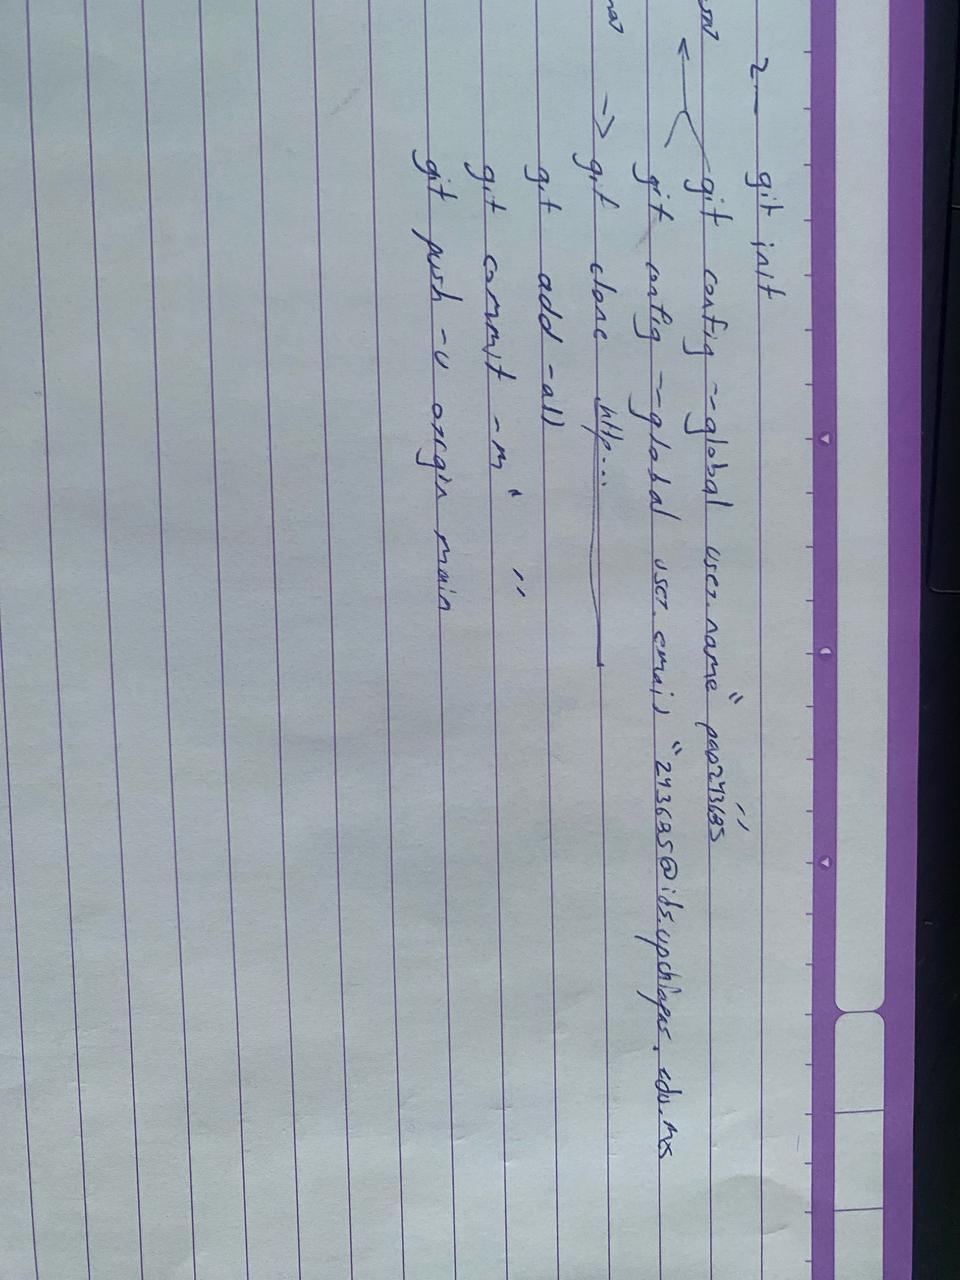 2— git init
git config --global user.name "pap243685"
git config --global user.email "243685@ids.upchiapas.edu.mx
→ git clone http...
git add -all
git commit -m " "
git push -u origin main